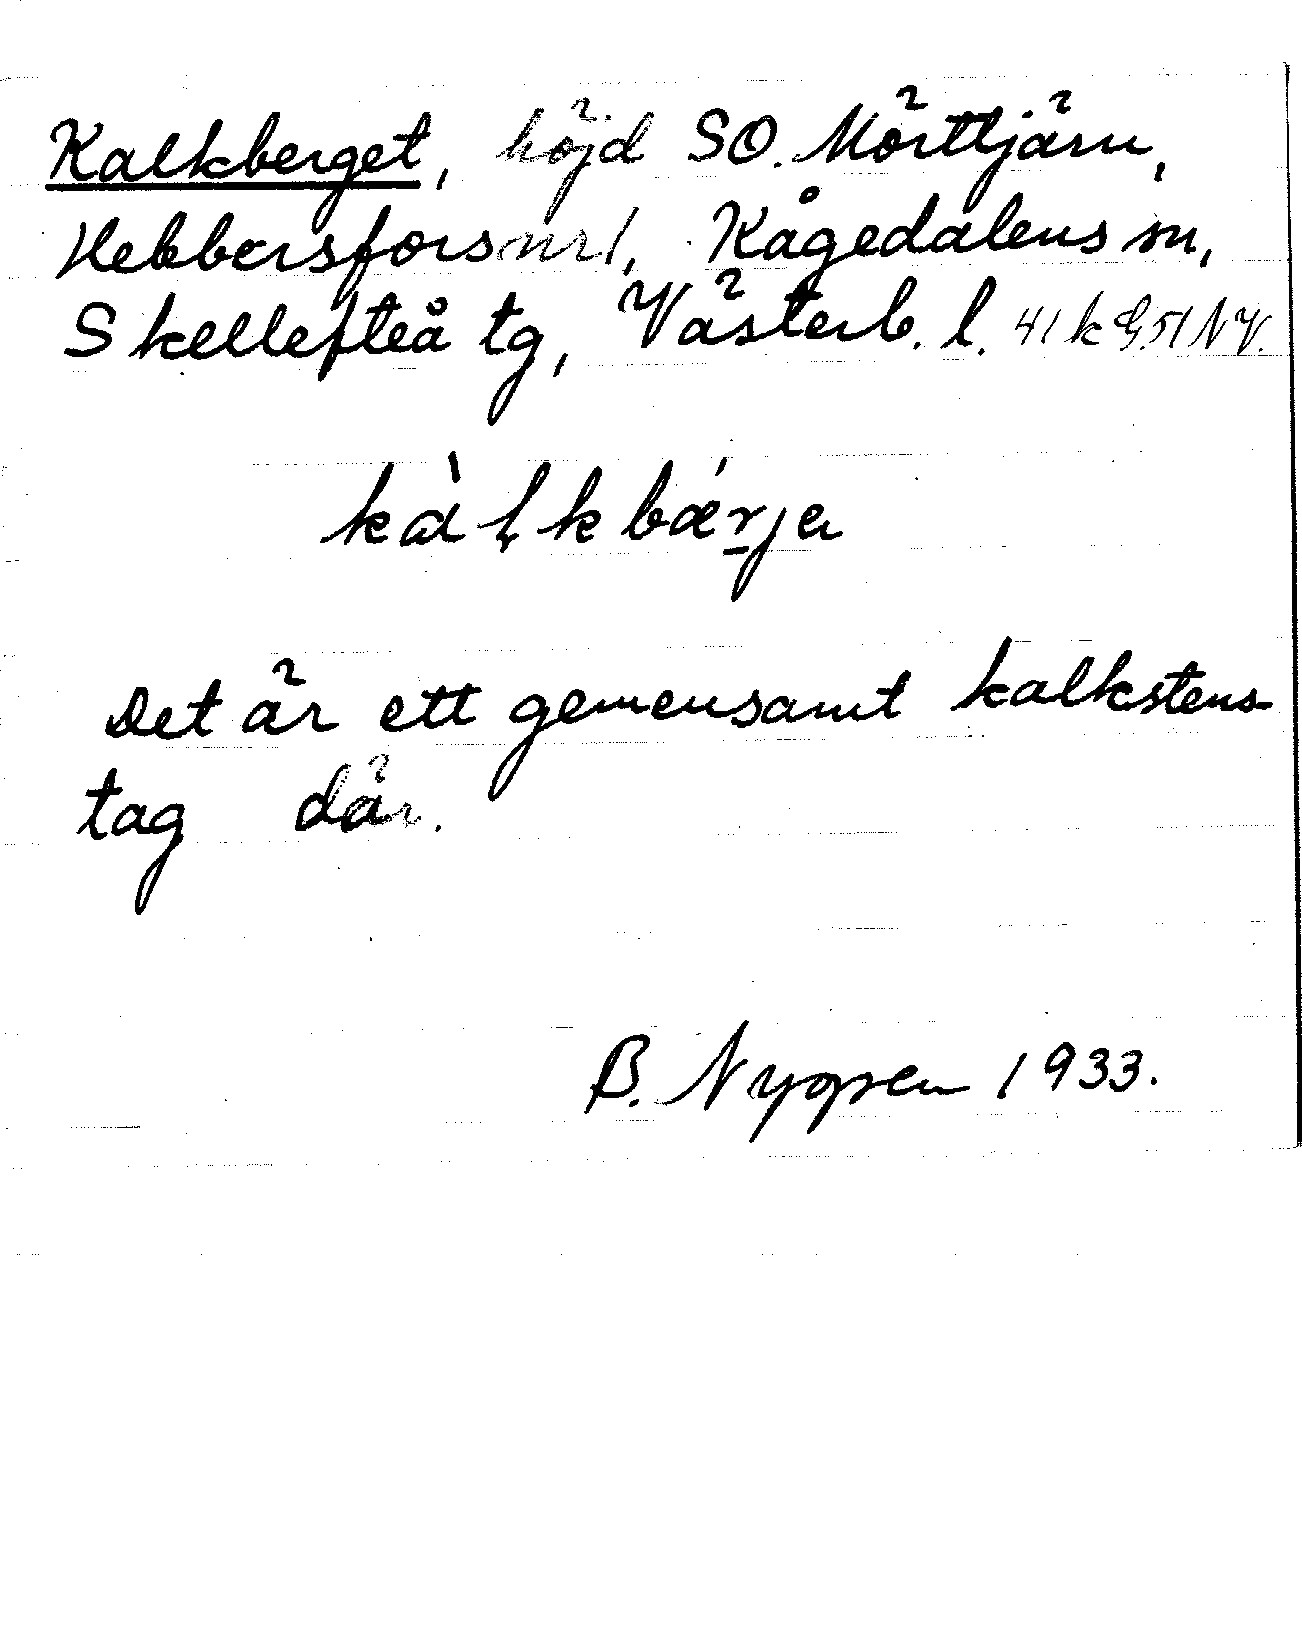 Kalkberget, höjd SO. Mörttjärn,
Hebbersfors nr 1, Kågedalens sn,
Skellefteå tg, Västerb. l. 41 k G. 51 NV.
kàɭkbæ´r̲ja
Det är ett gemensamt kalkstens-
tag där.
B. 1933.